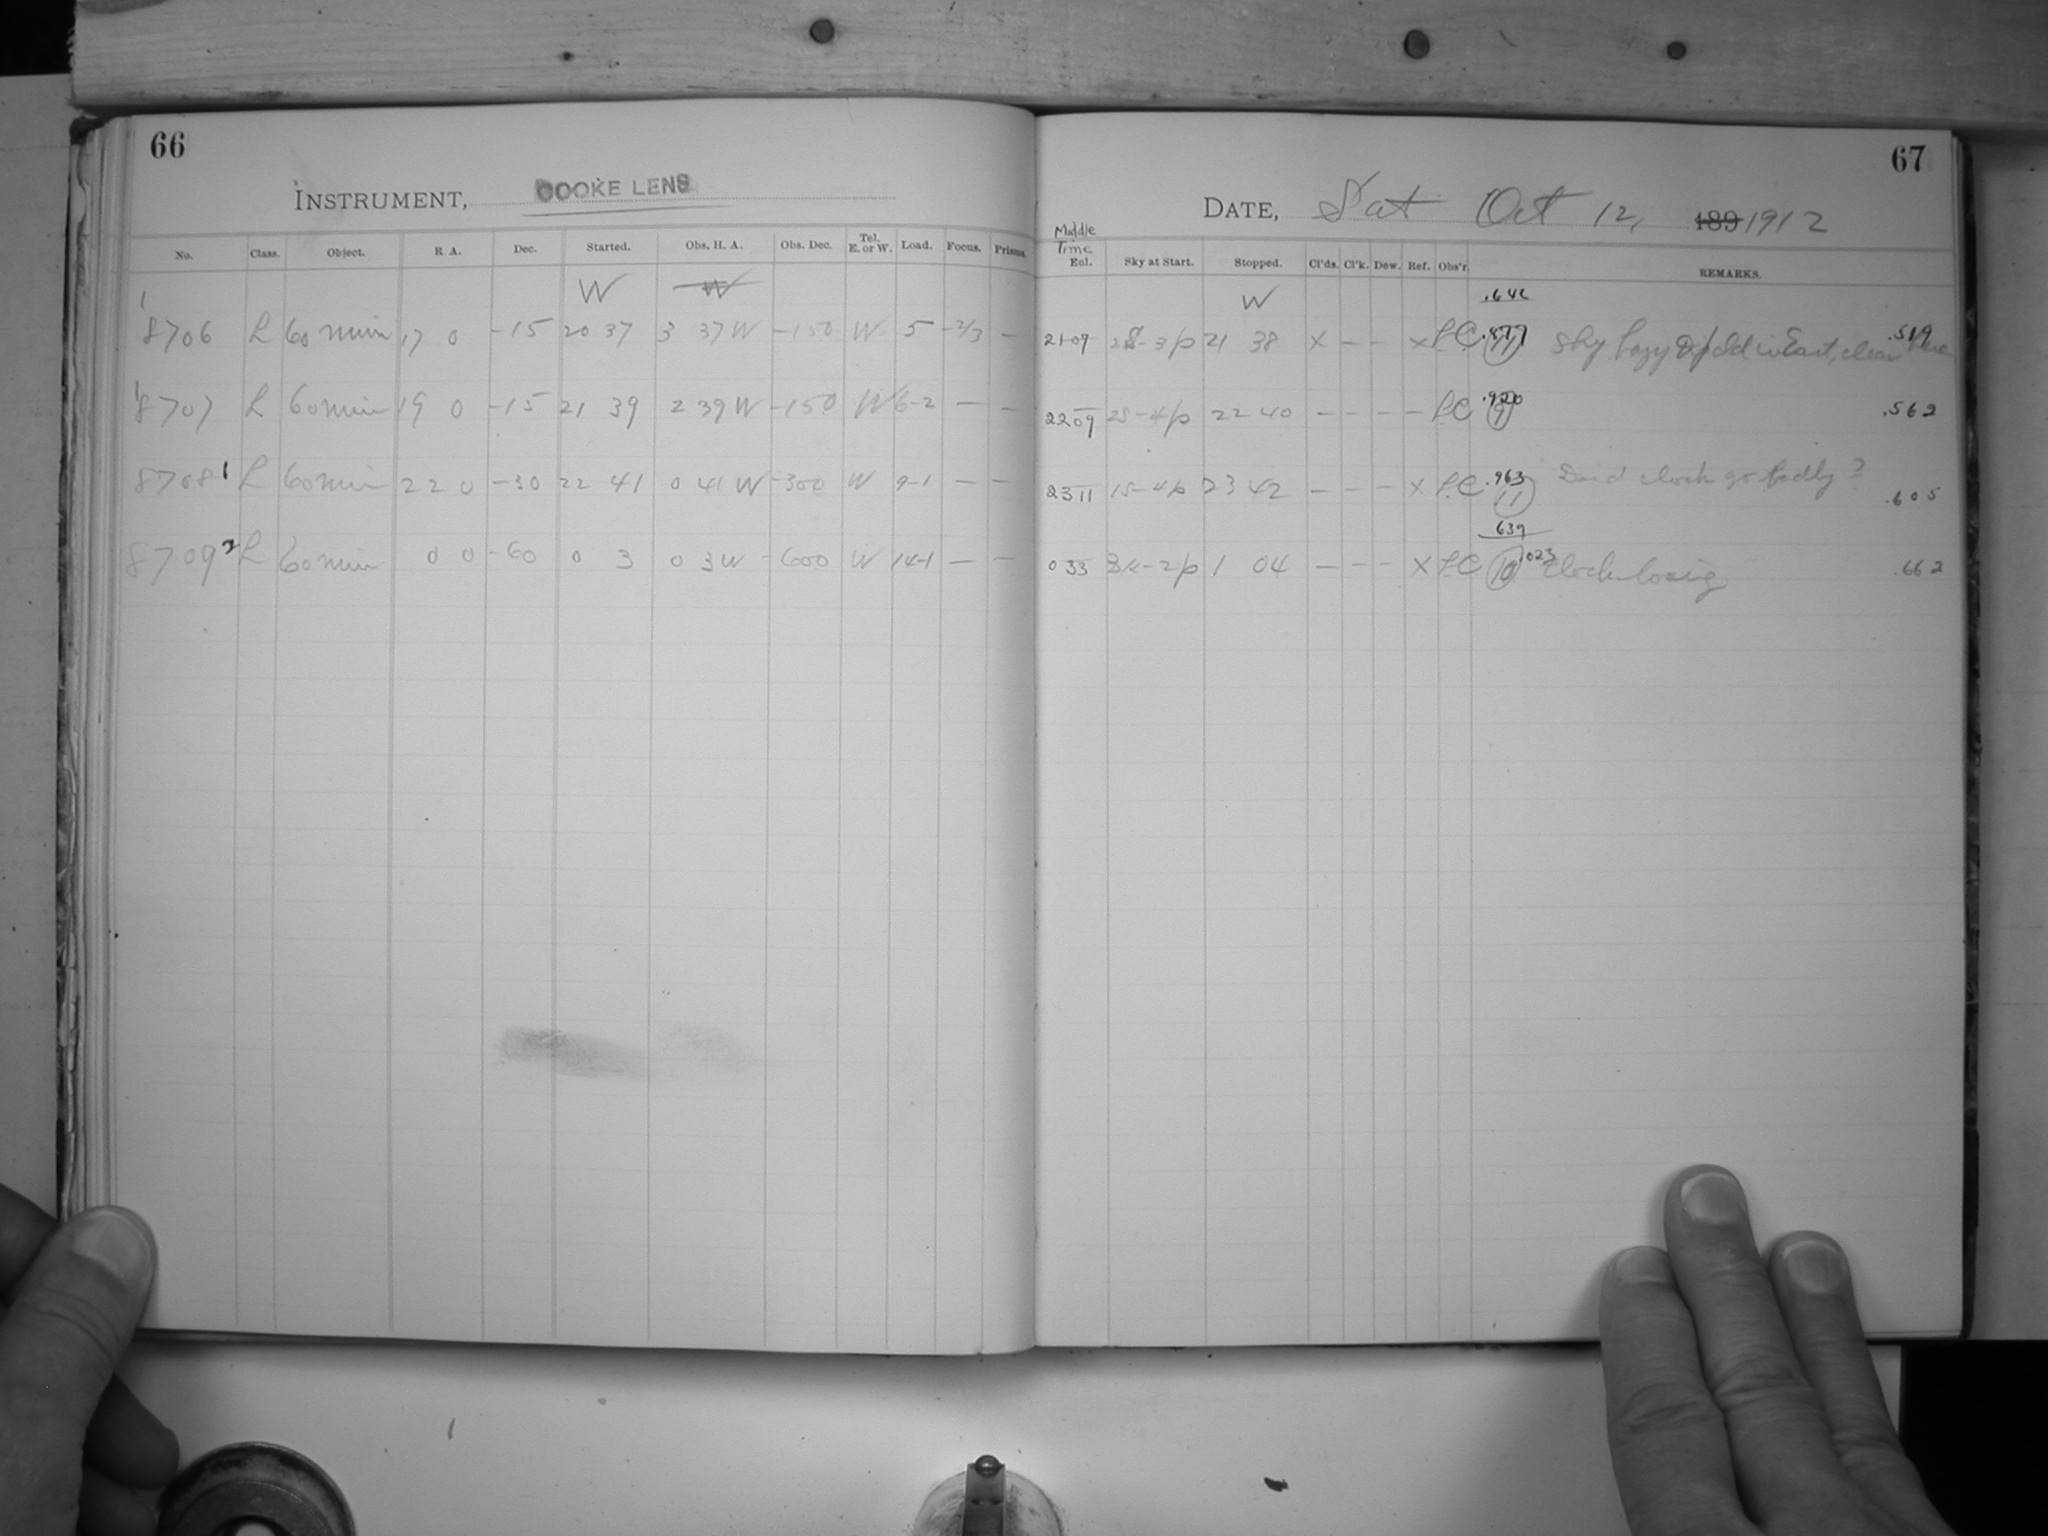 66
INSTRUMENT, COOKE LENS
No. Class. Object. R. A. Dec. Started. Obs. H. A. Obs. Dec. Tel. E. or W. Load. Focus. Prisms.
W W
8706 L 60 min 17 0 -15 20 37 3 37 W -150 W 5 -2/3 —
8707 L 60 min 19 0 -15 21 39 2 39 W -150 W 6-2 — —
8708 1 L 60 min 22 0 -30 22 41 0 41 W -300 W 9-1 — —
8709 2 L 60 min 0 0 -60 0 3 0 3 W -600 W 14-1 — —
67
DATE, Sat Oct 12, 189 1912
Middle Time
Enl. Sky at Start. Stopped. Cl'ds. Cl'k. Dew. Ref. Obs'r. REMARKS.
W .646
21 07 3p 21 38 X — — X L.C. .877 (11) Sky hazy in East, clear .519
22 09 2S-4p 22 40 — — — — L.C. .920 (9) .562
23 11 1S-4p 23 42 — — — X L.C. .963 (11) Did clock go badly? .605
639
0 33 2p 1 04 — — — X L.C. (10) .023 Clock losing .662